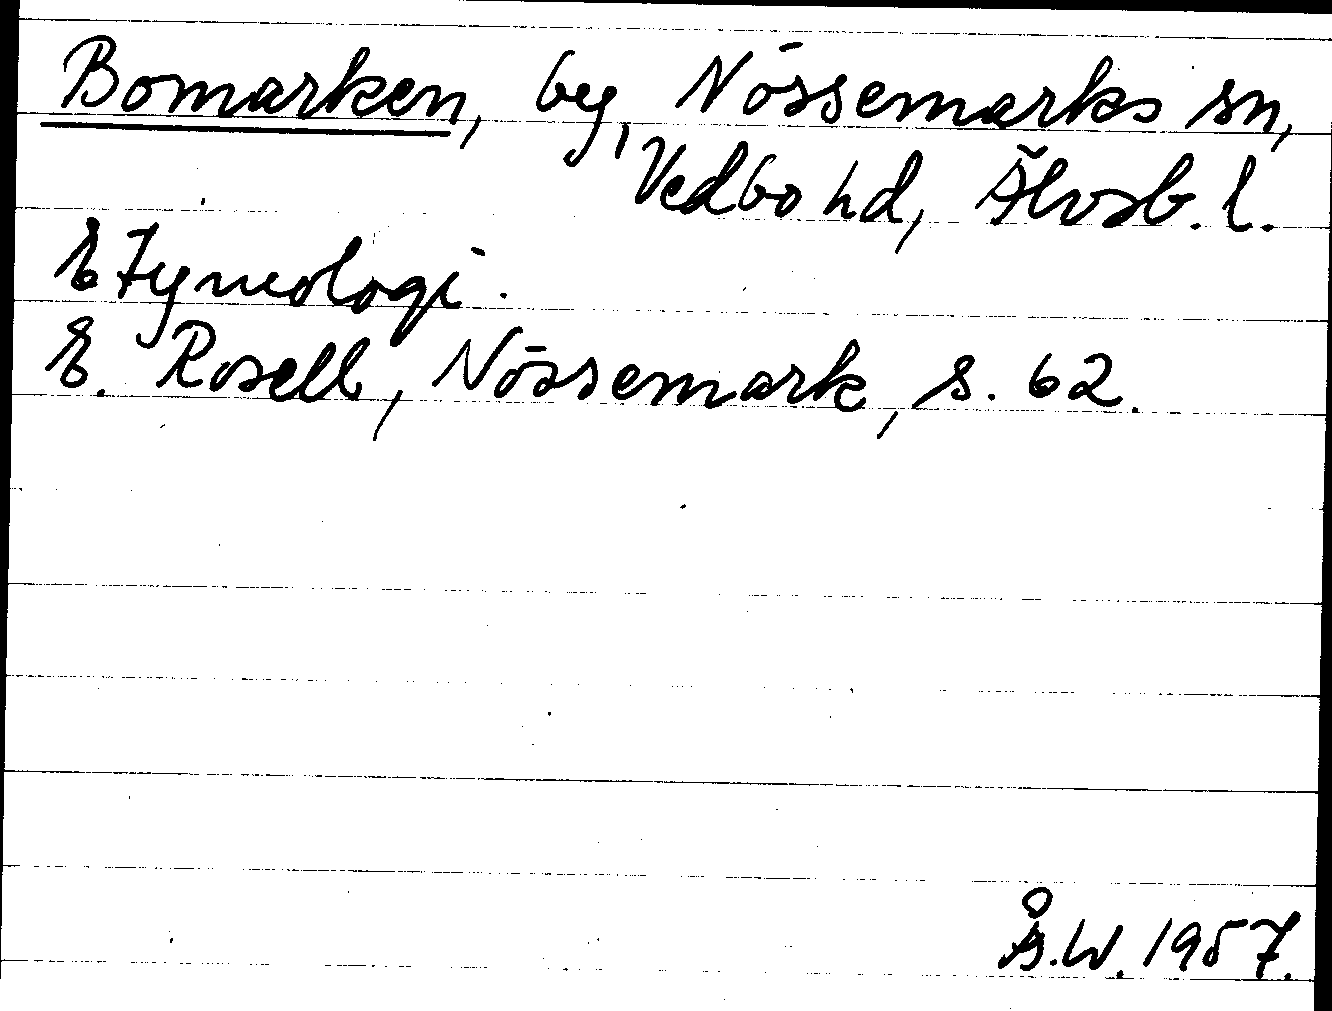 Bomarken, by, Nössemarks sn,
Vedbo hd, Älvsb. l.
Etymologi.
E. Rosell, Nössemark, s. 62.
Å.W. 1957.